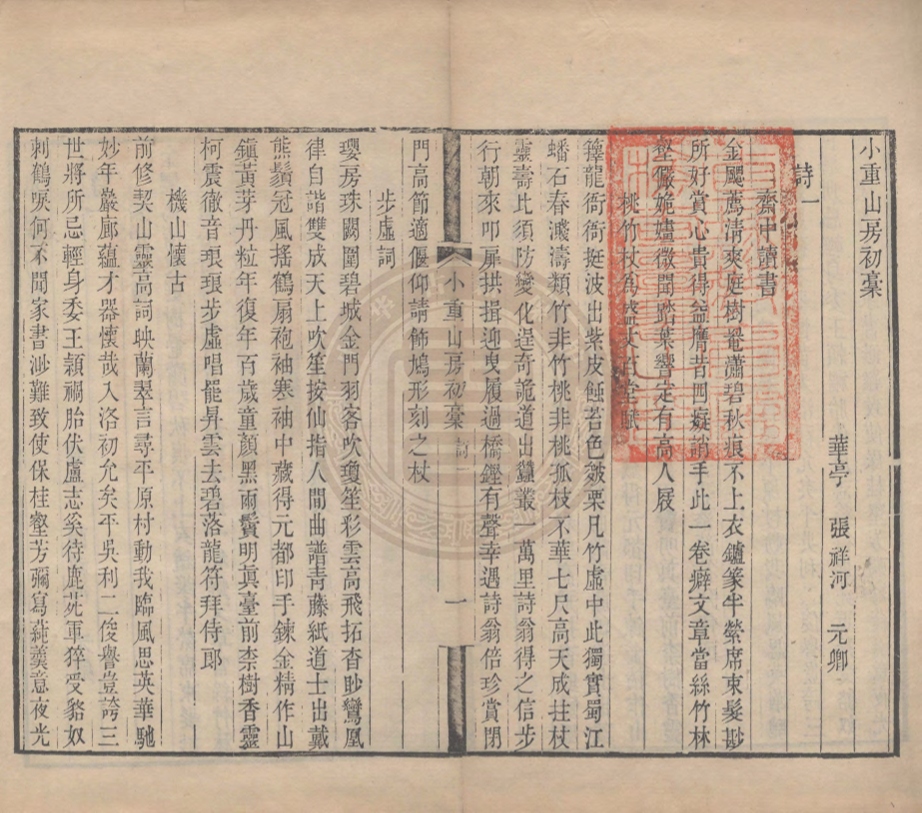 小重山房初稾
華亭 張祥河 元卿
詩一
齋中讀書
金颸薦清爽庭樹罨瀟碧秋痕不上衣鑪篆半縈席束髮尠
所好賞心貴得益膺昔四癡誚手此一卷癖文章當絲竹林
壑儼姽嫿微聞踏葉響定有高人屐
桃竹杖為
籜龍衙衙挺波出紫皮蝕若色皴栗凡竹虛中此獨實蜀江
蟠石春濺濤類竹非竹桃非桃孤枝不華七尺高天成拄杖
靈壽比須防變化逞奇詭道出蠶叢一萬里詩翁得之信步
行朝來叩扉拱揖迎曳履過橋鏗有聲幸遇詩翁倍珍賞閉
小重山房初稾 詞 一
門高節適偃仰請飾鳩形刻之杖
步虛詞
瓊房珠闕闉碧城金門羽客吹瓊笙彩雲高飛拓杳眇鸞凰
律自諧雙成天上吹笙按仙指人間曲譜青藤紙道士出戴
熊鬚冠風搖鶴扇袍袖寒袖中藏得元都印手鍊金精作山
鎮黃芽丹粒年復年百歲童顏黑雨鬢明眞臺前柰樹香靈
柯震徹音琅琅步虛唱罷昇雲去碧落龍符拜侍郎
機山懷古
前修契山靈高詞映蘭翠言尋平原村動我臨風思英華馳
妙年巖廊蘊才器懷哉入洛初允矣平吳利二俊譽豈誇三
世將所忌輕身委王頴禍胎伏盧志奚待鹿苑軍猝受貉奴
刺鶴唳何不聞家書渺難致使保桂壑芳彌寫蒓羹意夜光